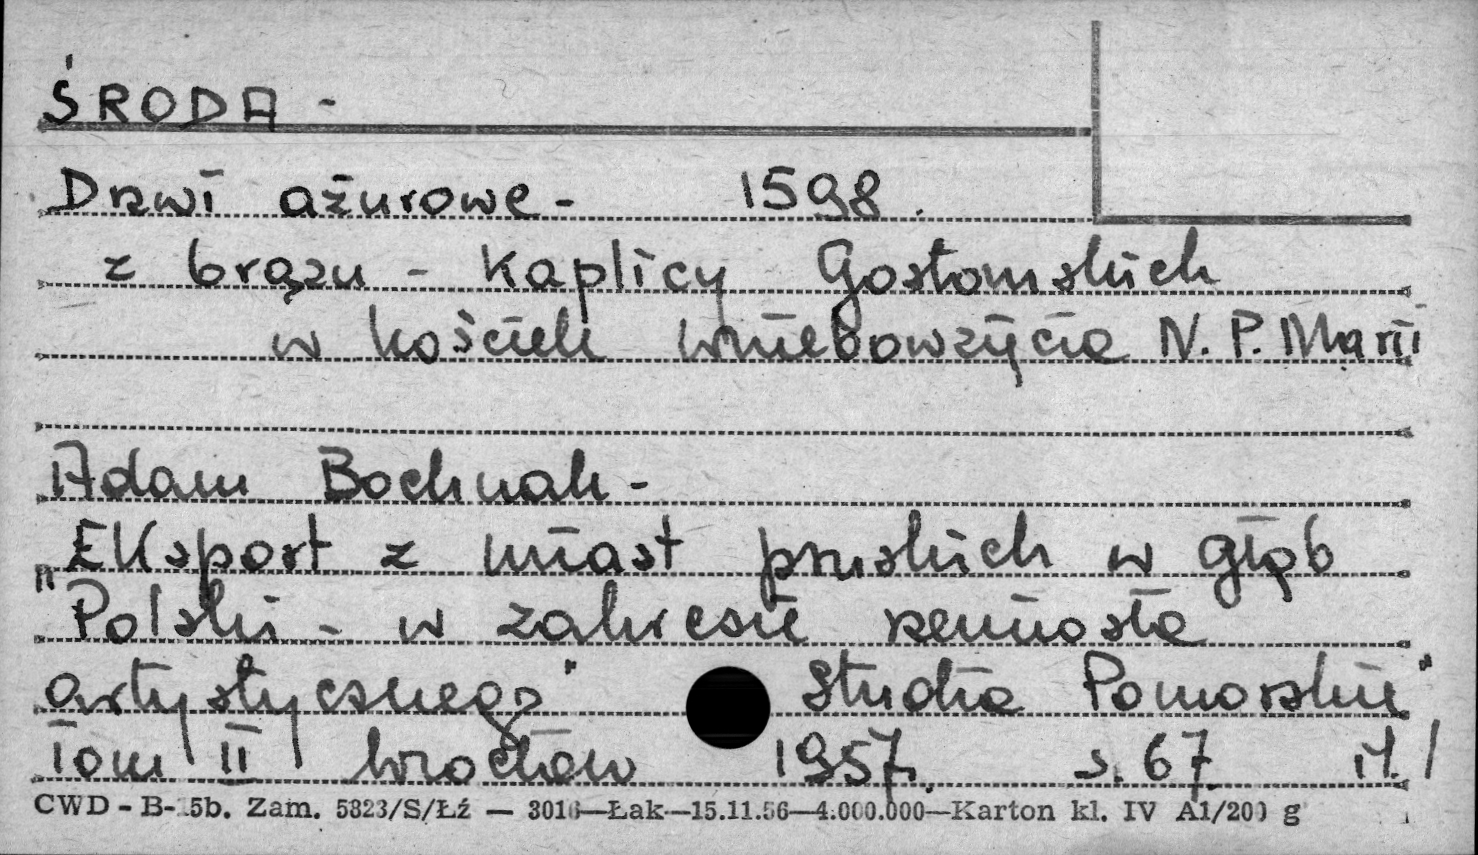 ŚRODA -
Drzwi ażurowe - 1598.
z brązu - Kaplicy Gostomskich
w kościele Wniebowzięcia N. P. Marii
Adam Bochnak -
"Eksport z miast pruskich w głąb
Polski - w zakresie rzemiosła
artystycznego" Studia Pomorskie"
Tom II Wrocław 1957. s. 67 il. /
CWD - B-15b. Zam. 5823/S/Łź — 3016—Łak—15.11.56—4.000.000—Karton kl. IV A1/200 g